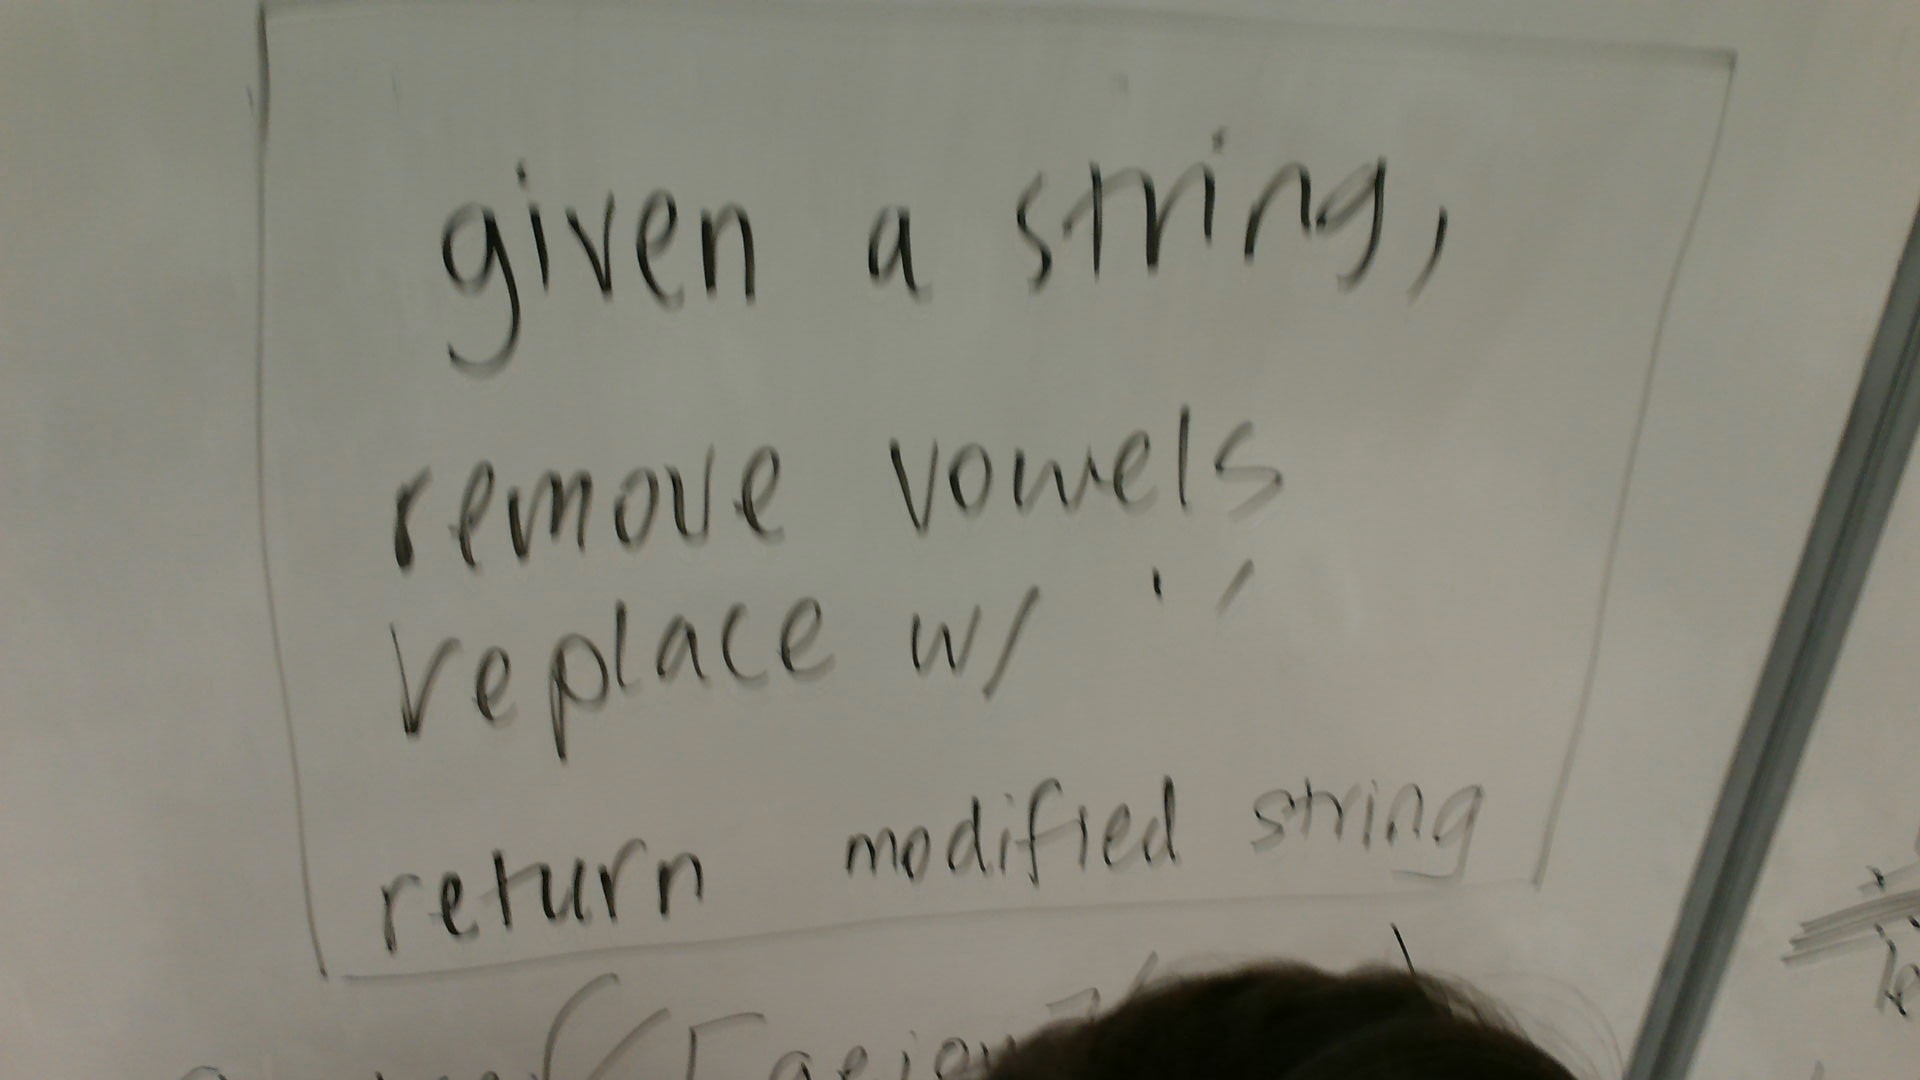 given a string,
remove vowels
replace w/ ' '
return modified string
[aeiou